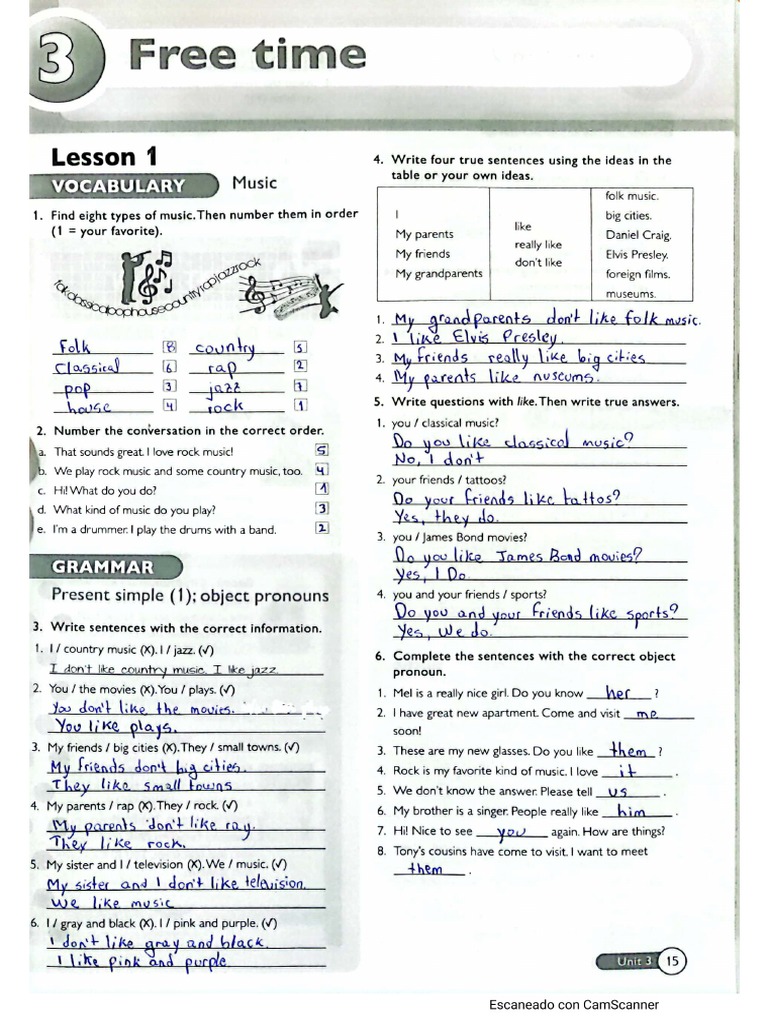 3 Free time
Lesson 1
VOCABULARY Music
1. Find eight types of music. Then number them in order
(1 = your favorite).
folkclassicalpophousecountryrapjazzrock
Folk 8 country 5
Classical 6 rap 2
pop 3 jazz 7
house 4 rock 1
2. Number the conversation in the correct order.
a. That sounds great. I love rock music! 5
b. We play rock music and some country music, too. 4
c. Hi! What do you do? 1
d. What kind of music do you play? 3
e. I'm a drummer. I play the drums with a band. 2
GRAMMAR
Present simple (1); object pronouns
3. Write sentences with the correct information.
1. I / country music (X). I / jazz. (✓)
I don't like country music. I like jazz.
2. You / the movies (X). You / plays. (✓)
You don't like the movies.
You like plays.
3. My friends / big cities (X). They / small towns. (✓)
My friends don't big cities.
They like small towns
4. My parents / rap (X). They / rock. (✓)
My parents don't like ray.
They like rock.
5. My sister and I / television (X). We / music. (✓)
My sister and I don't like television.
We like music
6. I / gray and black (X). I / pink and purple. (✓)
I don't like gray and black.
I like pink and purple
4. Write four true sentences using the ideas in the
table or your own ideas.
I
My parents
My friends
My grandparents
like
really like
don't like
folk music.
big cities.
Daniel Craig.
Elvis Presley.
foreign films.
museums.
1. My grandparents don't like folk music.
2. I like Elvis Presley.
3. My friends really like big cities
4. My parents like nuseums.
5. Write questions with like. Then write true answers.
1. you / classical music?
Do you like classical music?
No, I don't
2. your friends / tattoos?
Do your friends like tattos?
Yes, they do.
3. you / James Bond movies?
Do you like James Bond movies?
Yes, I Do.
4. you and your friends / sports?
Do you and your friends like sports?
Yes, We do.
6. Complete the sentences with the correct object
pronoun.
1. Mel is a really nice girl. Do you know her ?
2. I have great new apartment. Come and visit me
soon!
3. These are my new glasses. Do you like them ?
4. Rock is my favorite kind of music. I love it .
5. We don't know the answer. Please tell us .
6. My brother is a singer. People really like him .
7. Hi! Nice to see you again. How are things?
8. Tony's cousins have come to visit. I want to meet
them .
Unit 3 15
Escaneado con CamScanner